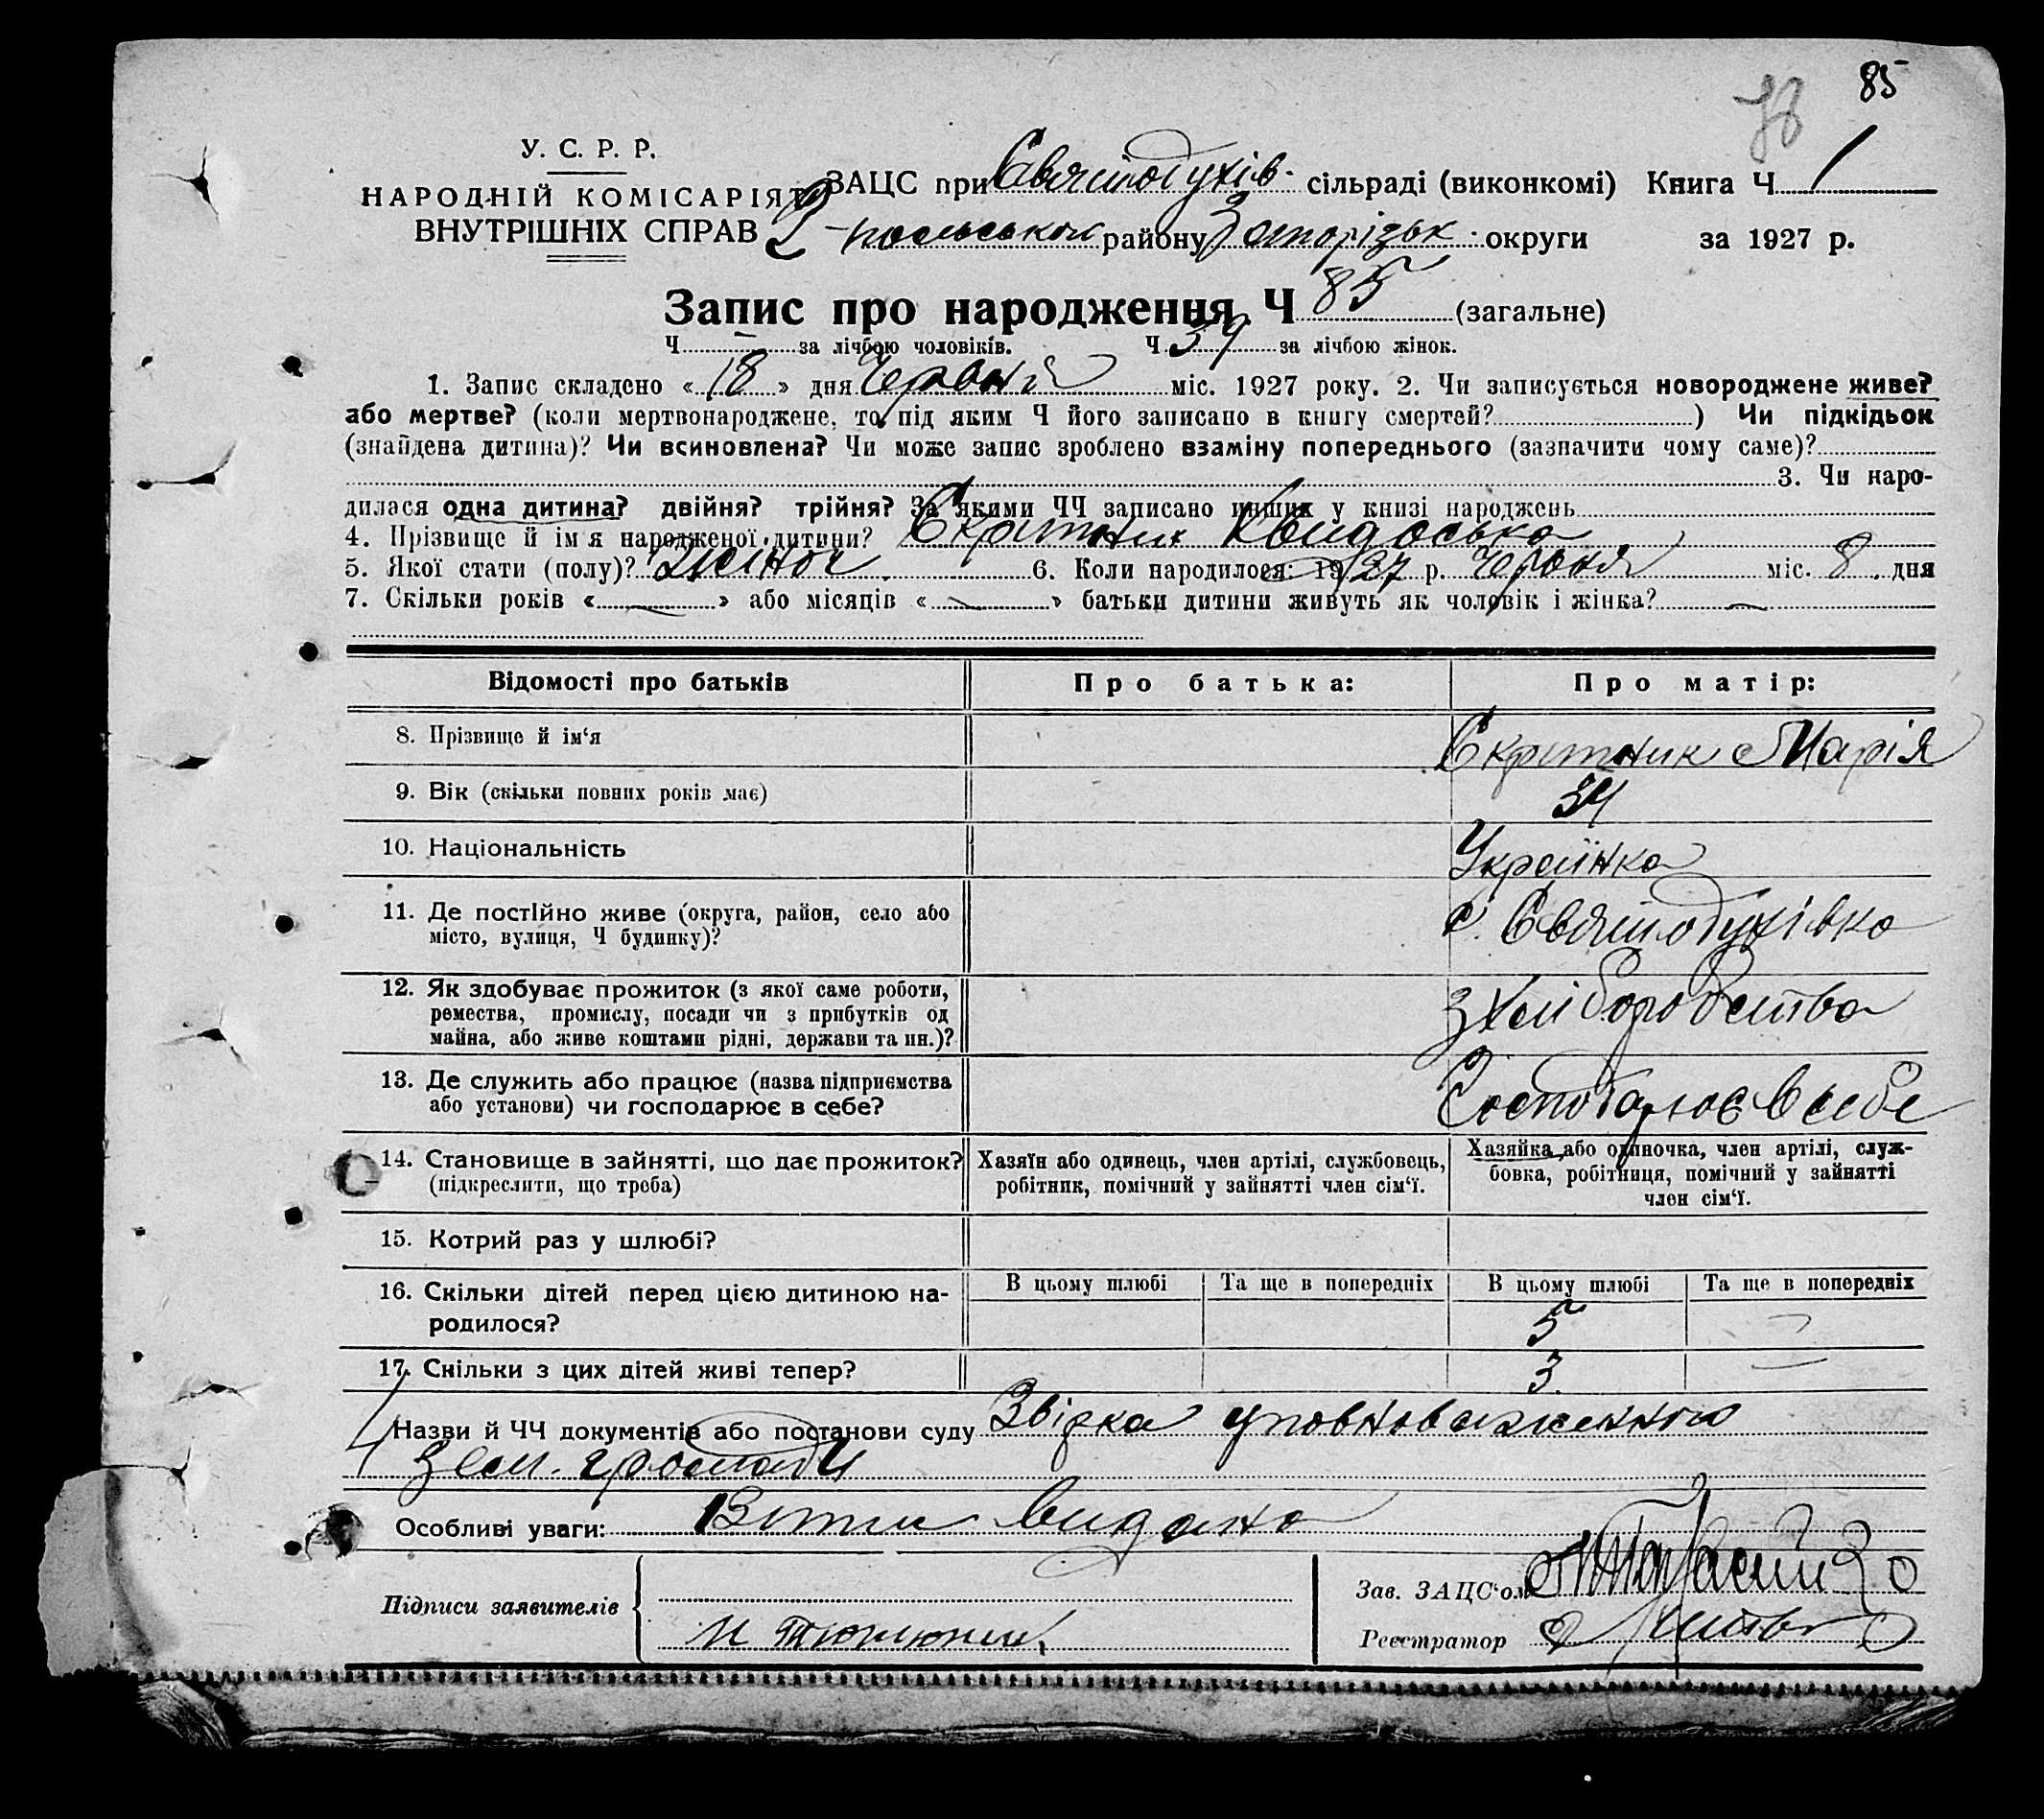 78
85
У. С. Р. Р.
НАРОДНІЙ КОМІСАРІЯТ
ВНУТРІШНІХ СПРАВ
ЗАЦС при Святодухів. сільраді (виконкомі) Книга Ч 1
району Запорізьк. округи за 1927 р.
Запис про народження Ч 85 (загальне)
Ч — за лічбою чоловіків. Ч 39 за лічбою жінок.
1. Запис складено «18» дня Червня міс. 1927 року. 2. Чи записується новороджене живе?
або мертве? (коли мертвонароджене, то під яким Ч його записано в книгу смертей? ) Чи підкідьок
(знайдена дитина)? Чи всиновлена? Чи може запис зроблено взаміну попереднього (зазначити чому саме)?
3. Чи наро-
дилася одна дитина? двійня? трійня? За якими ЧЧ записано инших у книзі народжень
4. Прізвище й імя народженої дитини? Скритник
5. Якої стати (полу)? Жіноч. 6. Коли народилося: 1927 р. Червня міс. 8 дня
7. Скільки років «—» або місяців «—» батьки дитини живуть як чоловік і жінка? —
Відомості про батьків Про батька: Про матір:
8. Прізвище й ім‘я Скритник Марія
9. Вік (скільки повних років має) 34
10. Національність Українка
11. Де постійно живе (округа, район, село або
місто, вулиця, Ч будинку)? с. Святодухівка
12. Як здобуває прожиток (з якої саме роботи,
ремества, промислу, посади чи з прибутків од
майна, або живе коштами рідні, держави та ин.)? з хліборобства
13. Де служить або працює (назва підприємства
або установи) чи господарює в себе? Господарює в себе
14. Становище в зайнятті, що дає прожиток?
(підкреслити, що треба)
Хазяїн або одинець, член артілі, службовець,
робітник, помічний у зайнятті член сім‘ї.
Хазяйка або одиночка, член артілі, служ-
бовка, робітниця, помічний у зайнятті
член сім‘ї.
15. Котрий раз у шлюбі?
16. Скільки дітей перед цією дитиною на-
родилося?
В цьому шлюбі Та ще в попередніх В цьому шлюбі Та ще в попередніх
5 —
17. Скільки з цих дітей живі тепер? 3 —
Назви й ЧЧ документів або постанови суду Звірка уповноваженного
зем. громади
Особливі уваги: Витяг видано
Підписи заявителів
Зав. ЗАЦС‘ом
Реєстратор